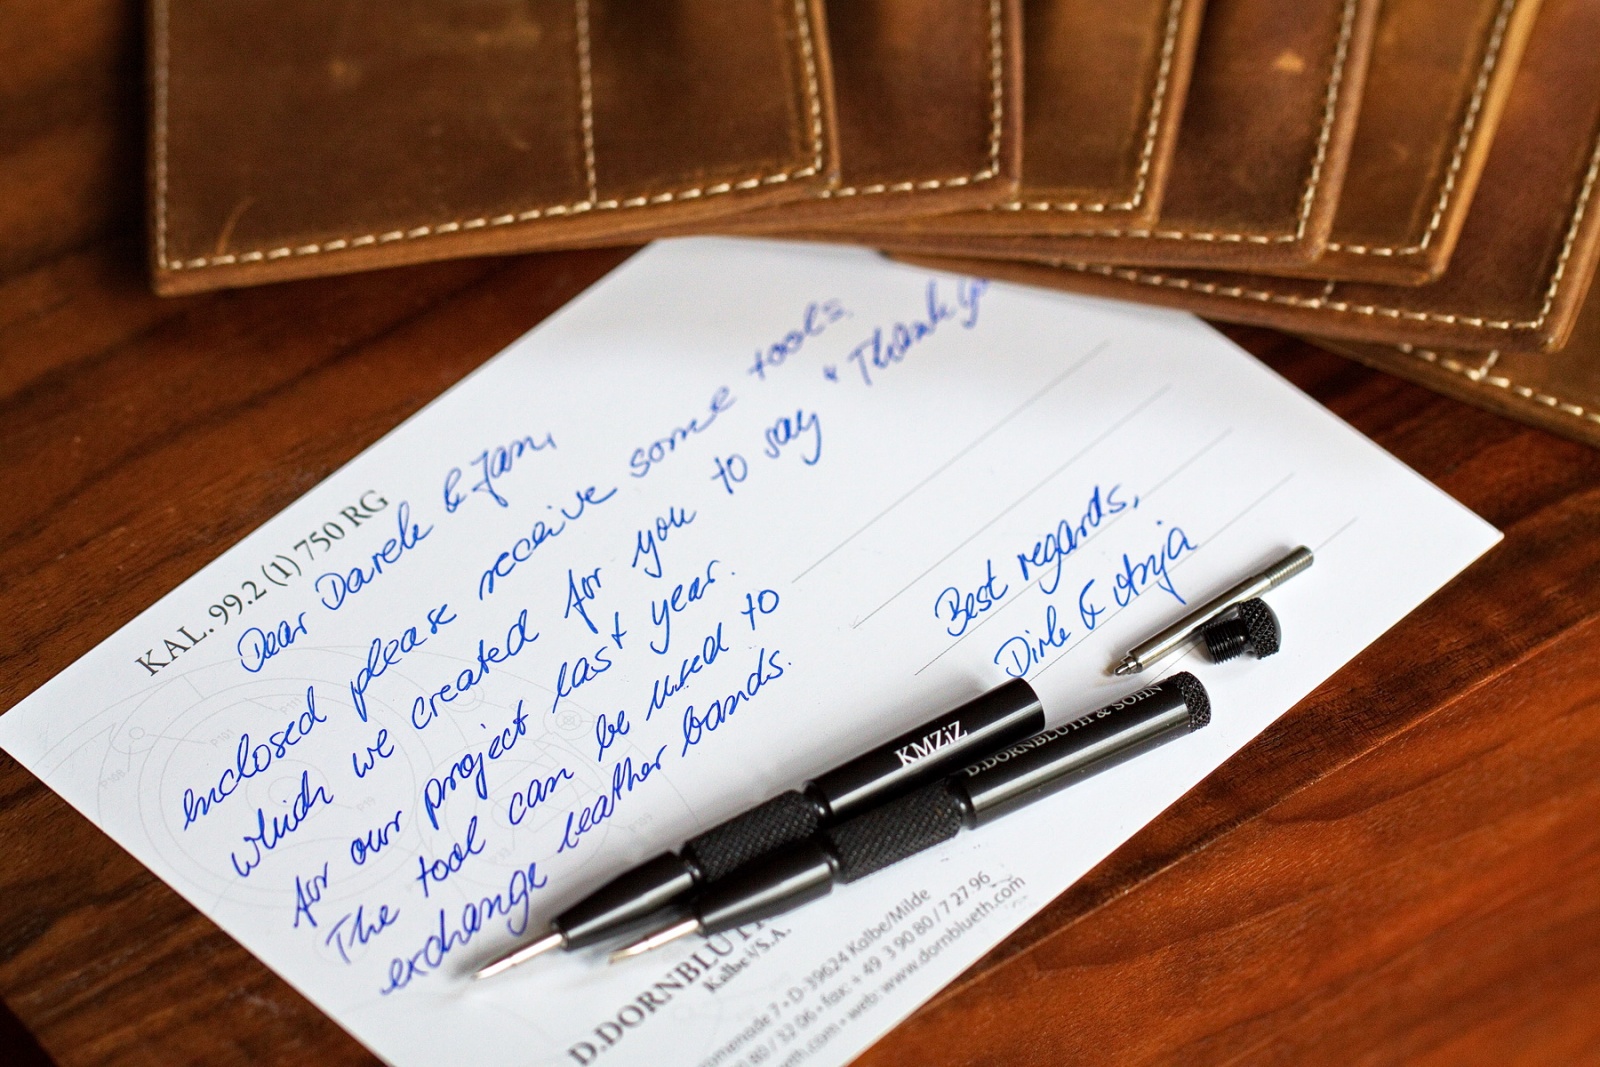 KAL. 99.2 (1) 750 RG
Dear Darek & Jan,
enclosed please receive some tools
which we created for you to say "Thank you
for our project last year.
The tool can be used to
exchange leather bands.
Best regards,
Dirk & Anja
KMZiZ
D.DORNBLÜTH & SOHN
D.DORNBLÜTH
Kalbe /S.A.
7 • D-39624 Kalbe/Milde
80 / 32 06 • fax: + 49 3 90 80 / 7 27 96
.com • web: www.dornblueth.com